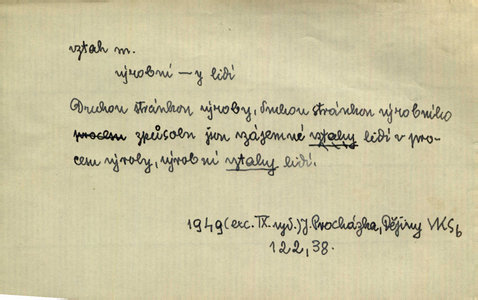 vztah m.
výrobní — y lidí
Druhou stránkou výroby, druhou stránkou výrobního
procesu způsobu jsou vzájemné vztahy lidí v pro-
cesu výroby, výrobní vztahy lidí.
1949 (exc. IX. vyd.) J. Procházka, Dějiny VKS b
122, 38.